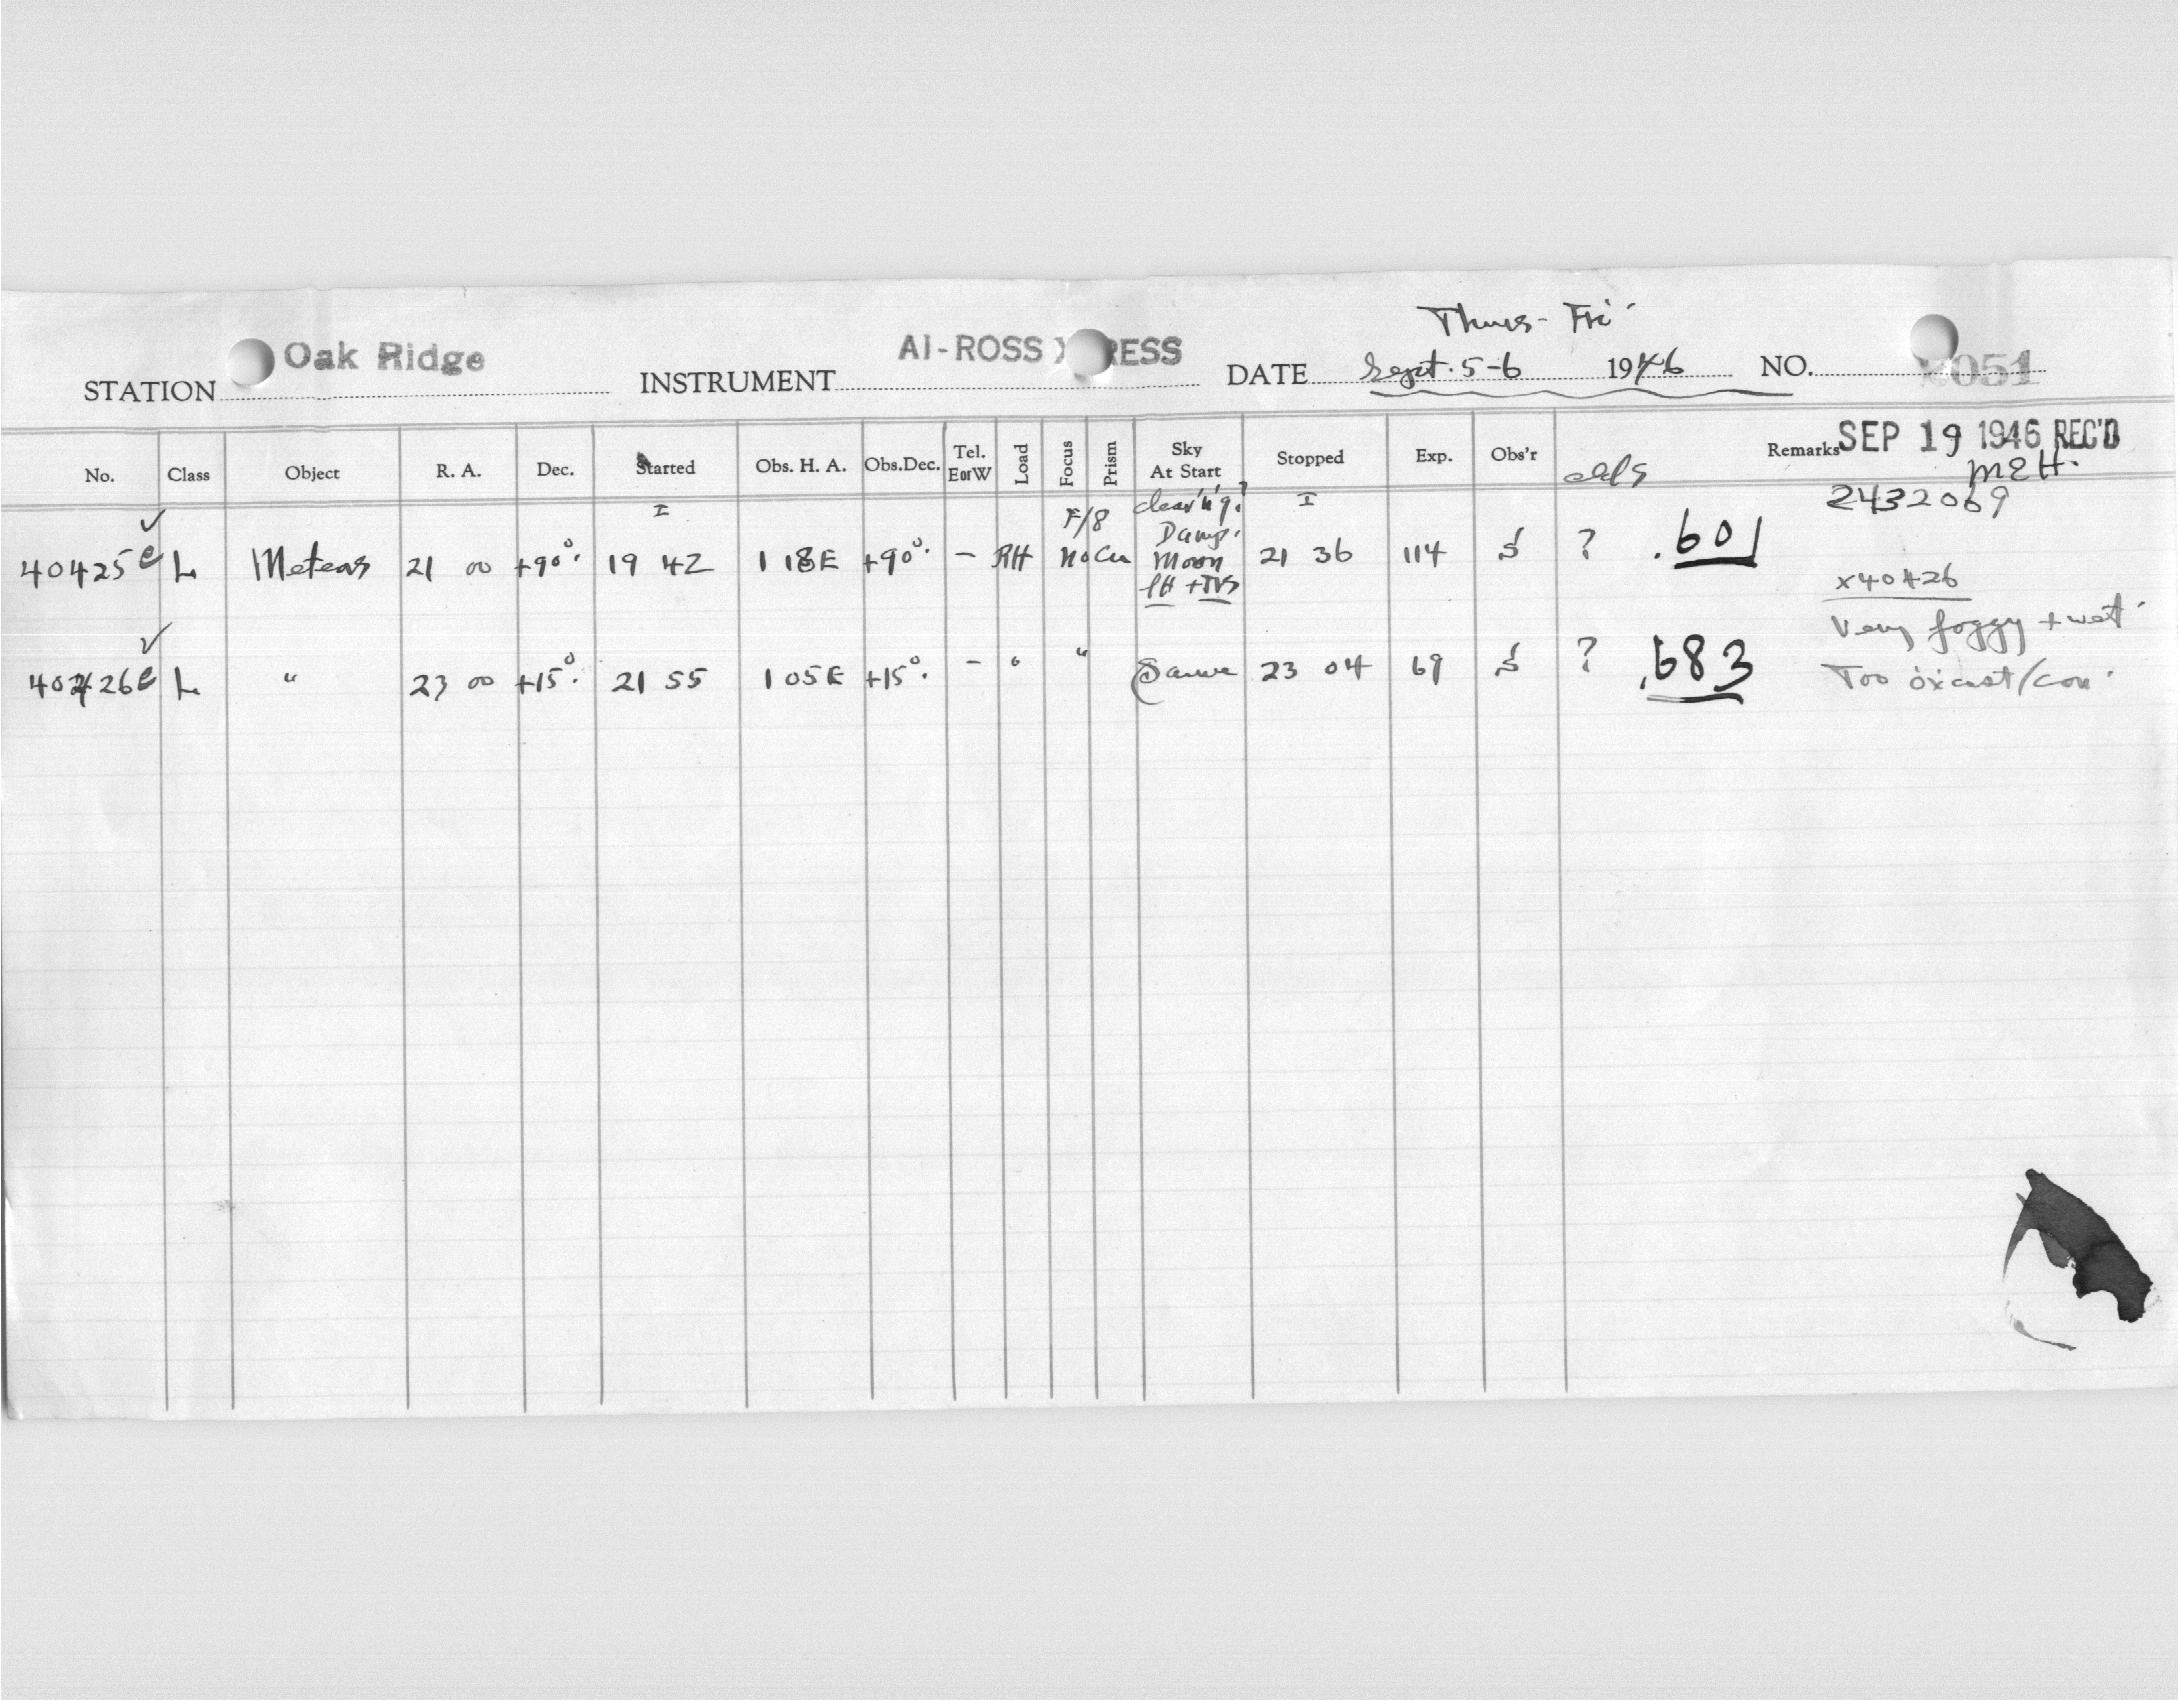 Thurs - Fri
STATION Oak Ridge INSTRUMENT AI-ROSS RESS DATE Sept. 5-6 1946 NO. 051
SEP 19 1946 REC'D
No. Class Object R. A. Dec. Started Obs. H. A. Obs.Dec. Tel. E or W Load Focus Prism Sky At Start Stopped Exp. Obs'r Remarks
MEH.
I F/8 clear'n'g? I 2432069
40425 e L Meteors 21 00 +90° 19 42 1 18E +90° - RH no Cu Damp. Moon 21 36 114 S ? .601
x40426
Very foggy + wet
40426 e L " 23 00 +15° 21 55 1 05E +15° - " " Same 23 04 69 S ? .683
Too o'cast/con.